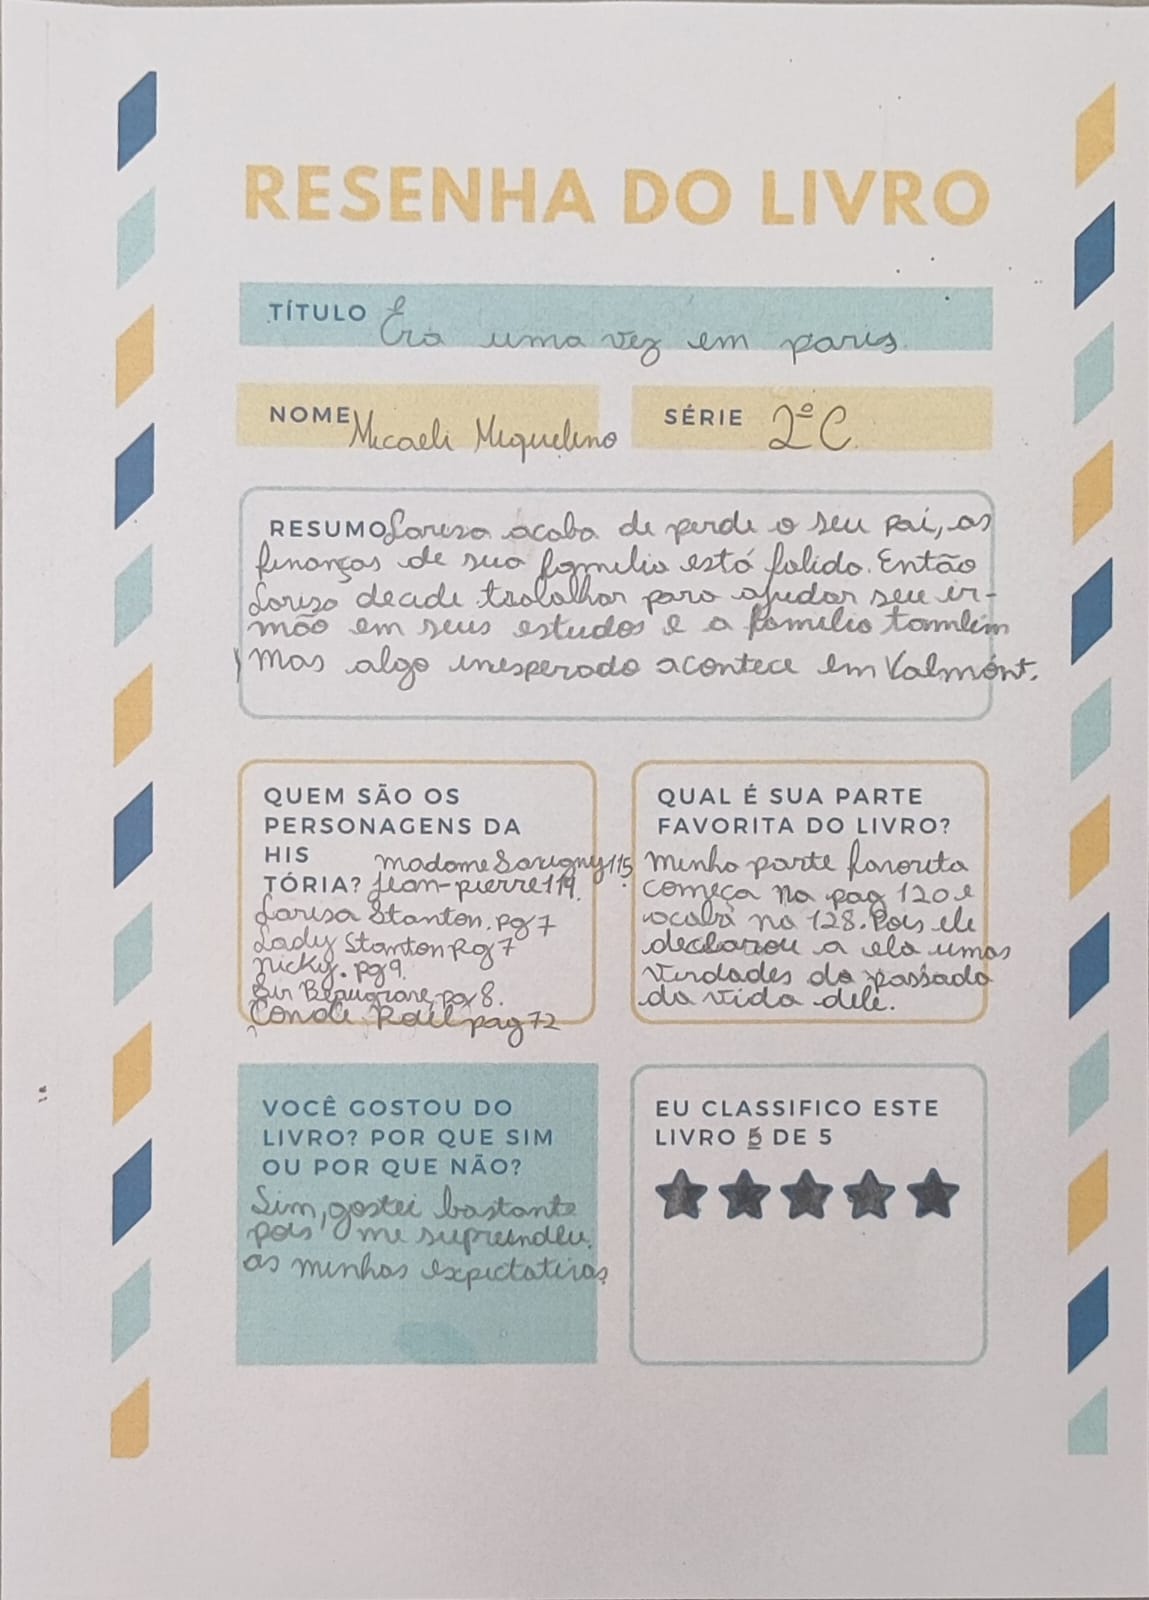 RESENHA DO LIVRO
TÍTULO Era uma vez em paris
NOME Micaeli Miquelino
SÉRIE 2º C
RESUMO Larisa acaba de perde o seu pai, as
finanças de sua familia está falida. Então
Larisa decide trabalhar para ajudar seu ir-
mão em seus estudos e a familia também
mas algo inesperado acontece em Valmont.
QUEM SÃO OS
PERSONAGENS DA
HIS madame Savigny 115
TÓRIA? Jean-pierre 119.
Larisa Stanton. pg 7
Lady Stanton Pg 7
Nicky. pg 9.
Sir Beaugrave, pg 8.
Conde Raul pag 72
QUAL É SUA PARTE
FAVORITA DO LIVRO?
minha parte favorita
começa na pag 120 e
acaba na 128. Pois ele
declarou a ela umas
verdades do passado
da vida dele.
VOCÊ GOSTOU DO
LIVRO? POR QUE SIM
OU POR QUE NÃO?
Sim, gostei bastante
pois me supreendeu
as minhas expectativas
EU CLASSIFICO ESTE
LIVRO 5 DE 5